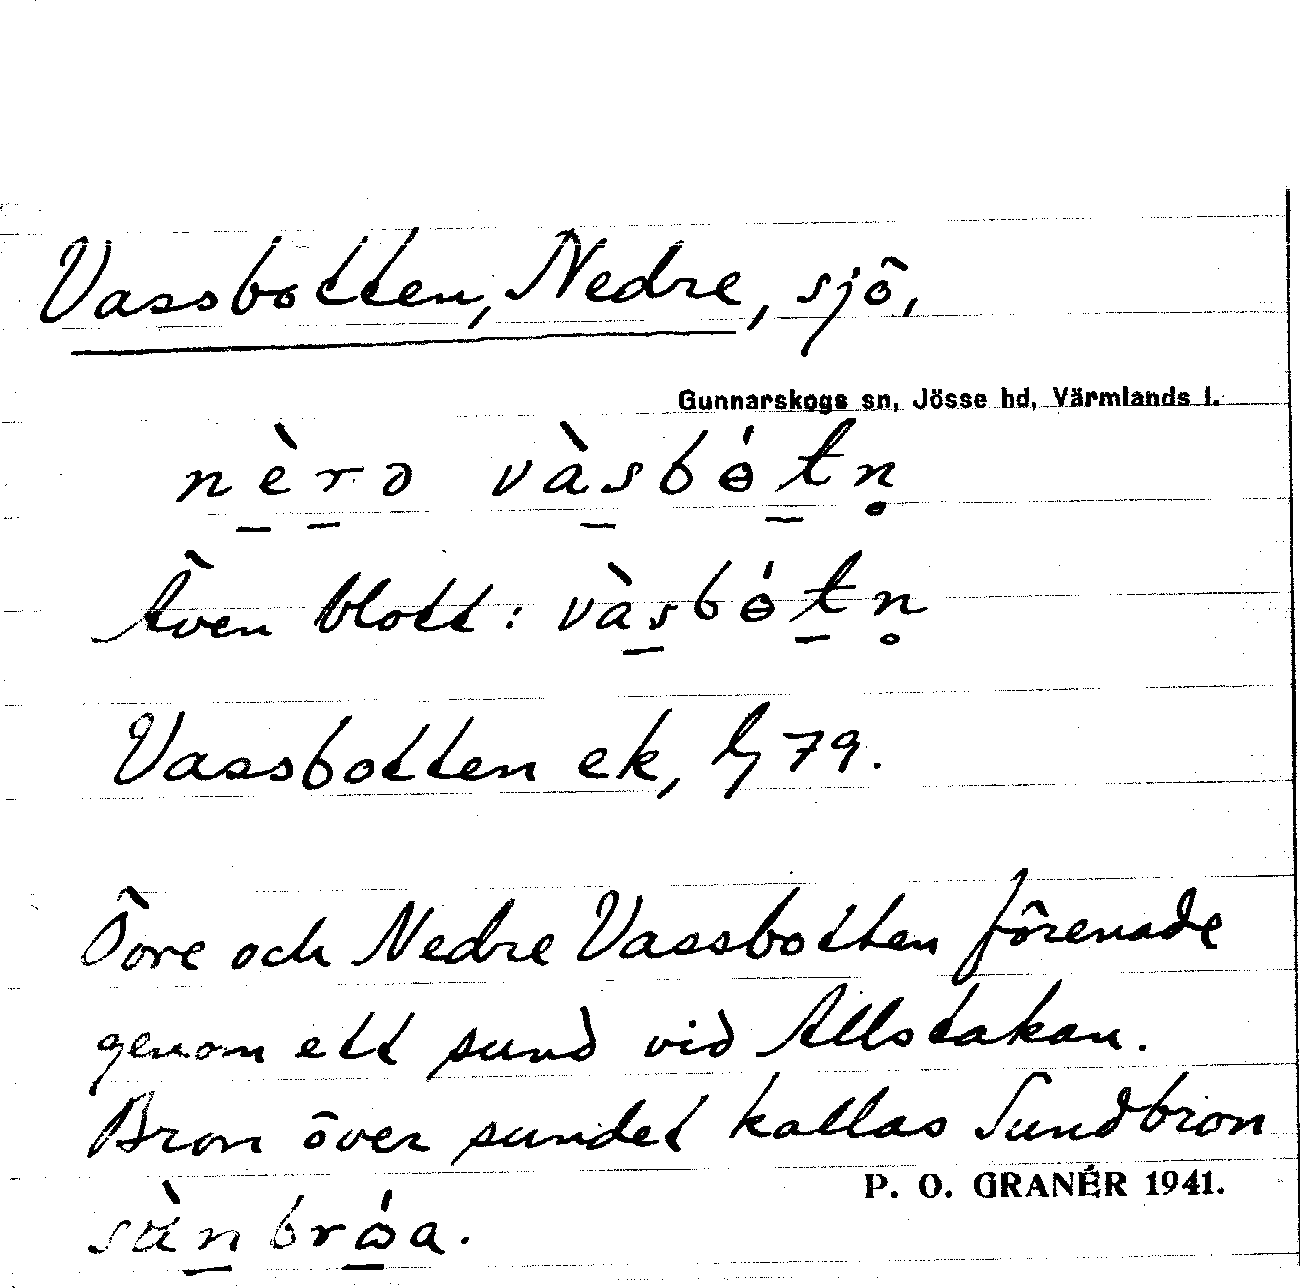 Vassbotten, Nedre, sjö,
Gunnarskogs sn, Jösse hd, Värmlands l.
nè̱ṟə và̱sbɵ́ṯn̥
Även blott: vàs̱bɵ́ṯn̥
Vassbotten ek, bl 79.
Övre och Nedre Vassbotten förenade
genom ett sund vid Allstakan.
Bron över sundet kallas Sundbron
P. O. GRANÉR 1941.